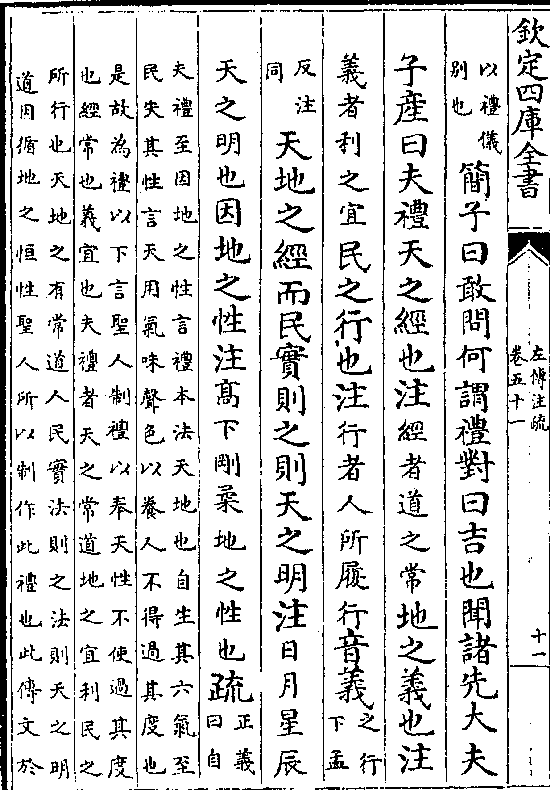 欽定四庫全書
左傳注疏
卷五十一
十一
以禮儀
別也
簡子曰敢問何謂禮對曰吉也聞諸先大夫
子產曰夫禮天之經也注經者道之常地之義也注
義者利之宜民之行也注行者人所履行音義
之行
下孟
反注
同
天地之經而民實則之則天之明注日月星辰
天之明也因地之性注髙下剛柔地之性也疏
正義
曰自
夫禮至因地之性言禮本法天地也自生其六氣至
民失其性言天用氣味聲色以養人不得過其度也
是故為禮以下言聖人制禮以奉天性不使過其度
也經常也義宜也夫禮者天之常道地之宜利民之
所行也天地之有常道人民實法則之法則天之明
道因循地之恒性聖人所以制作此禮也此傳文於